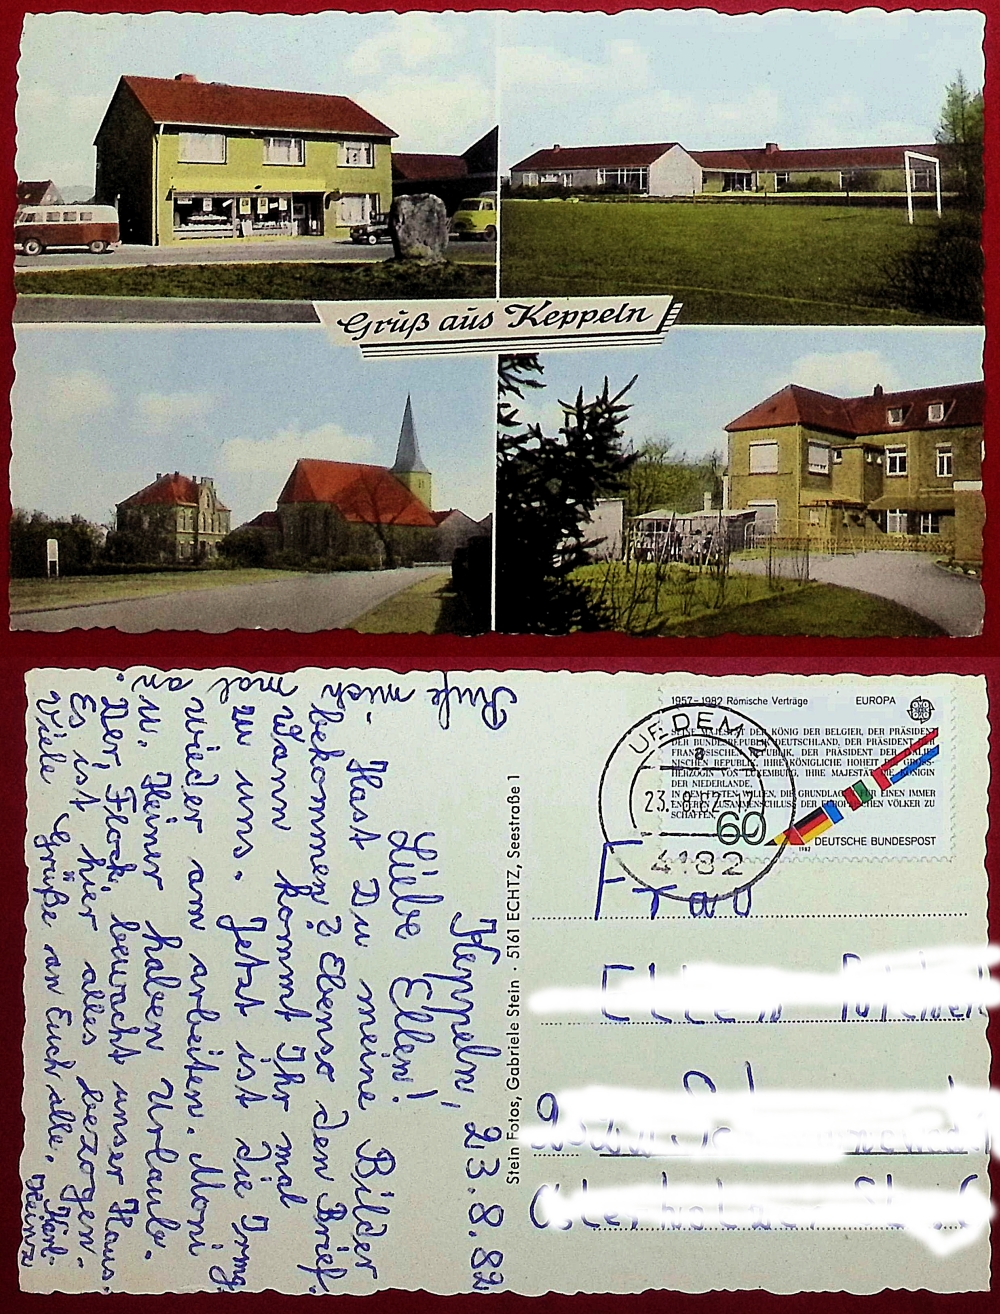 Gruß aus Keppeln
1957-1982 Römische Verträge EUROPA
SEINE MAJESTÄT DER KÖNIG DER BELGIER, DER PRÄSIDENT
DER BUNDESREPUBLIK DEUTSCHLAND, DER PRÄSIDENT DER
FRANZÖSISCHEN REPUBLIK, DER PRÄSIDENT DER ITALIE-
NISCHEN REPUBLIK, IHRE KÖNIGLICHE HOHEIT DIE GROSS-
HERZOGIN VON LUXEMBURG, IHRE MAJESTÄT DIE KÖNIGIN
DER NIEDERLANDE,
IN DEM FESTEN WILLEN, DIE GRUNDLAGEN FÜR EINEN IMMER
ENGEREN ZUSAMMENSCHLUSS DER EUROPÄISCHEN VÖLKER ZU
SCHAFFEN
60
DEUTSCHE BUNDESPOST
1982
UEDEM 1
a
23.-8.82-17
4182
Frau
Stein Fotos, Gabriele Stein · 5161 ECHTZ, Seestraße 1
Keppeln, 23.8.82
Liebe Ellen!
Hast Du meine Bilder
bekommen? Ebenso den Brief.
Wann kommt Ihr mal
zu uns. Jetzt ist die Irmg.
wieder am arbeiten. Moni
u. Heiner haben Urlaub.
Der, Flocki, bewacht unser Haus.
Es ist hier alles bezogen.
Viele Grüße an Euch alle. Karl-
Heinz
Rufe mich mal an.